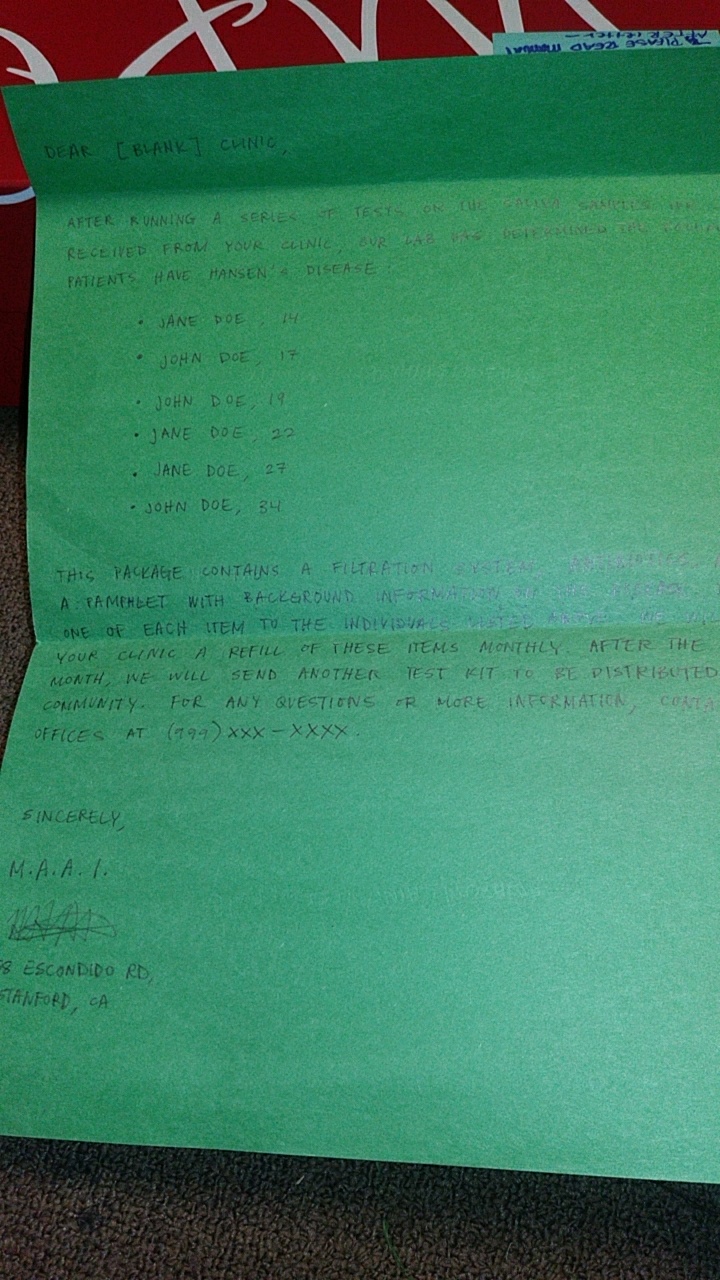 PLEASE READ MANUAL
AFTER LETTER
DEAR [BLANK] CLINIC,
AFTER RUNNING A SERIES OF TESTS ON THE SALIVA SAMPLES WE
RECEIVED FROM YOUR CLINIC, OUR LAB HAS DETERMINED THE
PATIENTS HAVE HANSEN'S DISEASE:
• JANE DOE, 14
• JOHN DOE, 17
• JOHN DOE, 19
• JANE DOE, 22
• JANE DOE, 27
• JOHN DOE, 34
THIS PACKAGE CONTAINS A FILTRATION SYSTEM, ANTIBIOTICS,
A PAMPHLET WITH BACKGROUND INFORMATION ON THE DISEASE.
ONE OF EACH ITEM TO THE INDIVIDUALS LISTED ABOVE. WE
YOUR CLINIC A REFILL OF THESE ITEMS MONTHLY. AFTER THE
MONTH, WE WILL SEND ANOTHER TEST KIT TO BE DISTRIBUTED
COMMUNITY. FOR ANY QUESTIONS OR MORE INFORMATION,
OFFICES AT (999)XXX-XXXX.
SINCERELY,
M.A.A.I.
8 ESCONDIDO RD,
STANFORD, CA